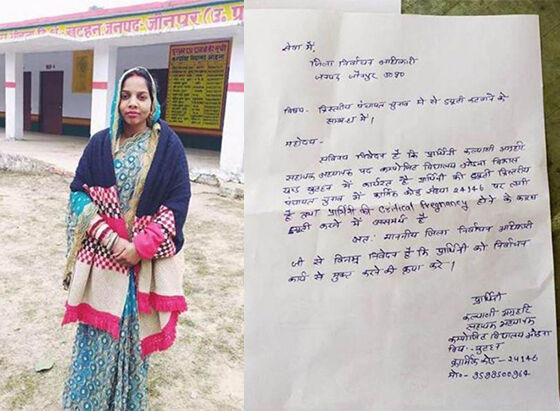 जनपद जौनपुर (उ. प्र
सेवा में,
जिला निर्वाचन अधिकारी
जनपद जौनपुर उ०प्र०
विषय- त्रिस्तरीय पंचायत चुनाव में से ड्यूटी कटवाने के
सम्बन्ध में।
महोदय-
सविनय निवेदन है कि प्रार्थिनी कल्याणी अग्रहरि
सहायक अध्यापक पद कम्पोजिट विद्यालय विकास
खण्ड खुटहन में कार्यरत है प्रार्थिनी की ड्यूटी त्रिस्तरीय
पंचायत चुनाव में कार्मिक कोड संख्या 24146 पर लगी
है तथा प्रार्थिनी की Critical Pregnancy होने के कारण
ड्यूटी करने में असमर्थ है
अतः माननीय जिला निर्वाचन अधिकारी
जी से विनम्र निवेदन है कि प्रार्थिनी को निर्वाचन
कार्य से मुक्त करने की कृपा करें।
प्रार्थिनी
कल्याणी अग्रहरि
सहायक अध्यापक
कम्पोजिट विद्यालय
खुटहन
कार्मिक कोड- 24146
मो०- 9598500964